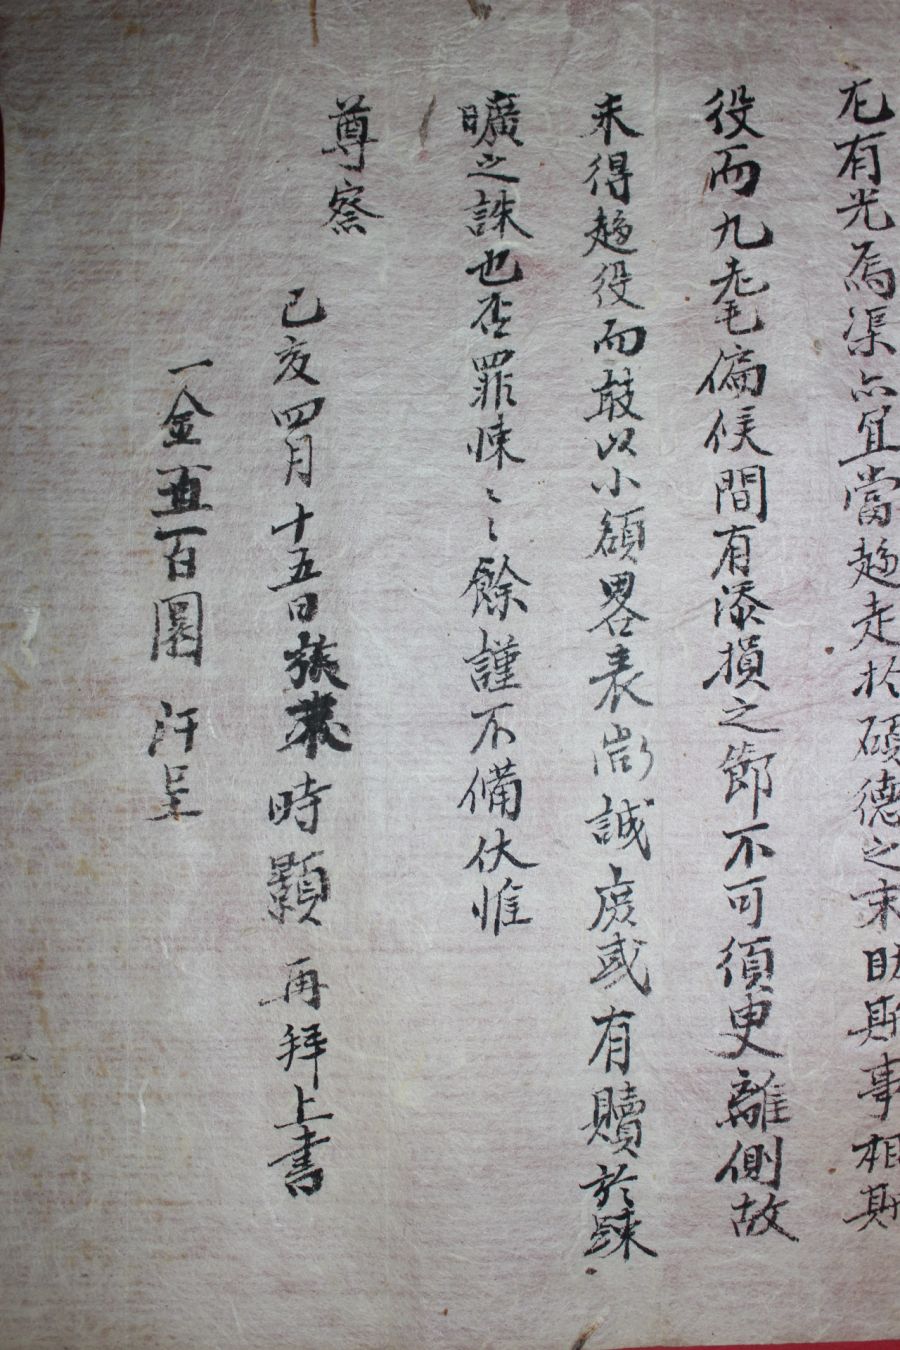 尤有光焉渠亦宜當趍走於碩德之末助斯事相斯
役而九耄偏候間有添損之節不可須臾離側故
未得趍役而敢以小額畧表尙誠庶或有贖於踈
曠之誅也否罪悚〻〻餘謹不備伏惟
尊察
己亥四月十五日張 時顯 再拜上書
一金五百圜 汗呈